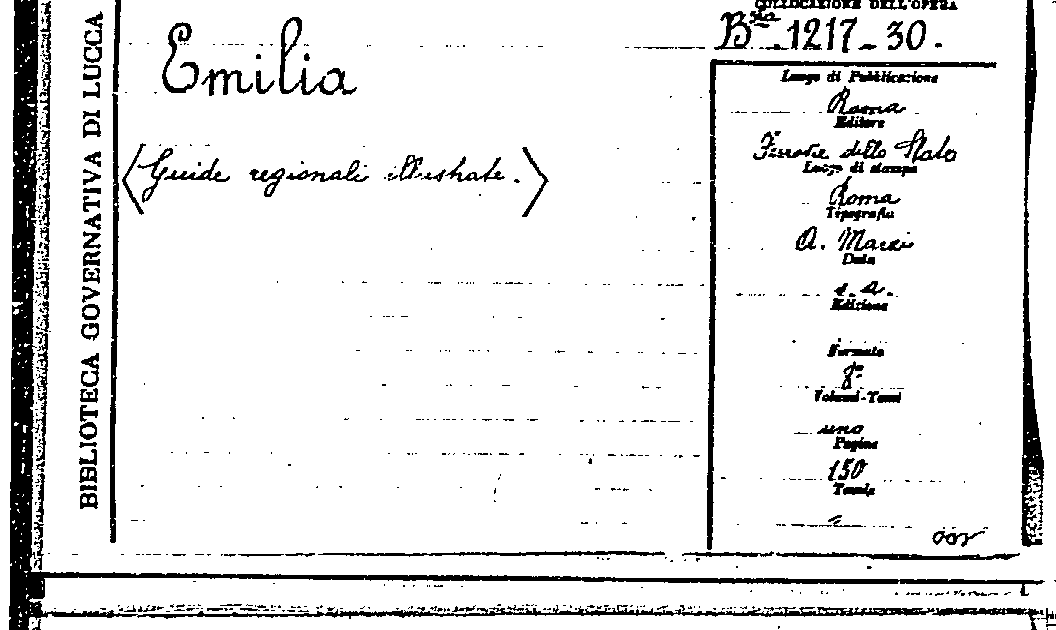 BIBLIOTECA GOVERNATIVA DI LUCCA
Emilia
<Guide regionali illustrate.>
COLLOCAZIONE DELL'OPERA
Bta. 1217-30.
Luogo di Pubblicazione
Roma
Editore
Ferrovie dello Stato
Luogo di stampa
Roma
Tipografia
A. Marzi
Data
s. a.
Edizione
Formato
8°
Volumi-Tomi
uno
Pagine
150
Tavole